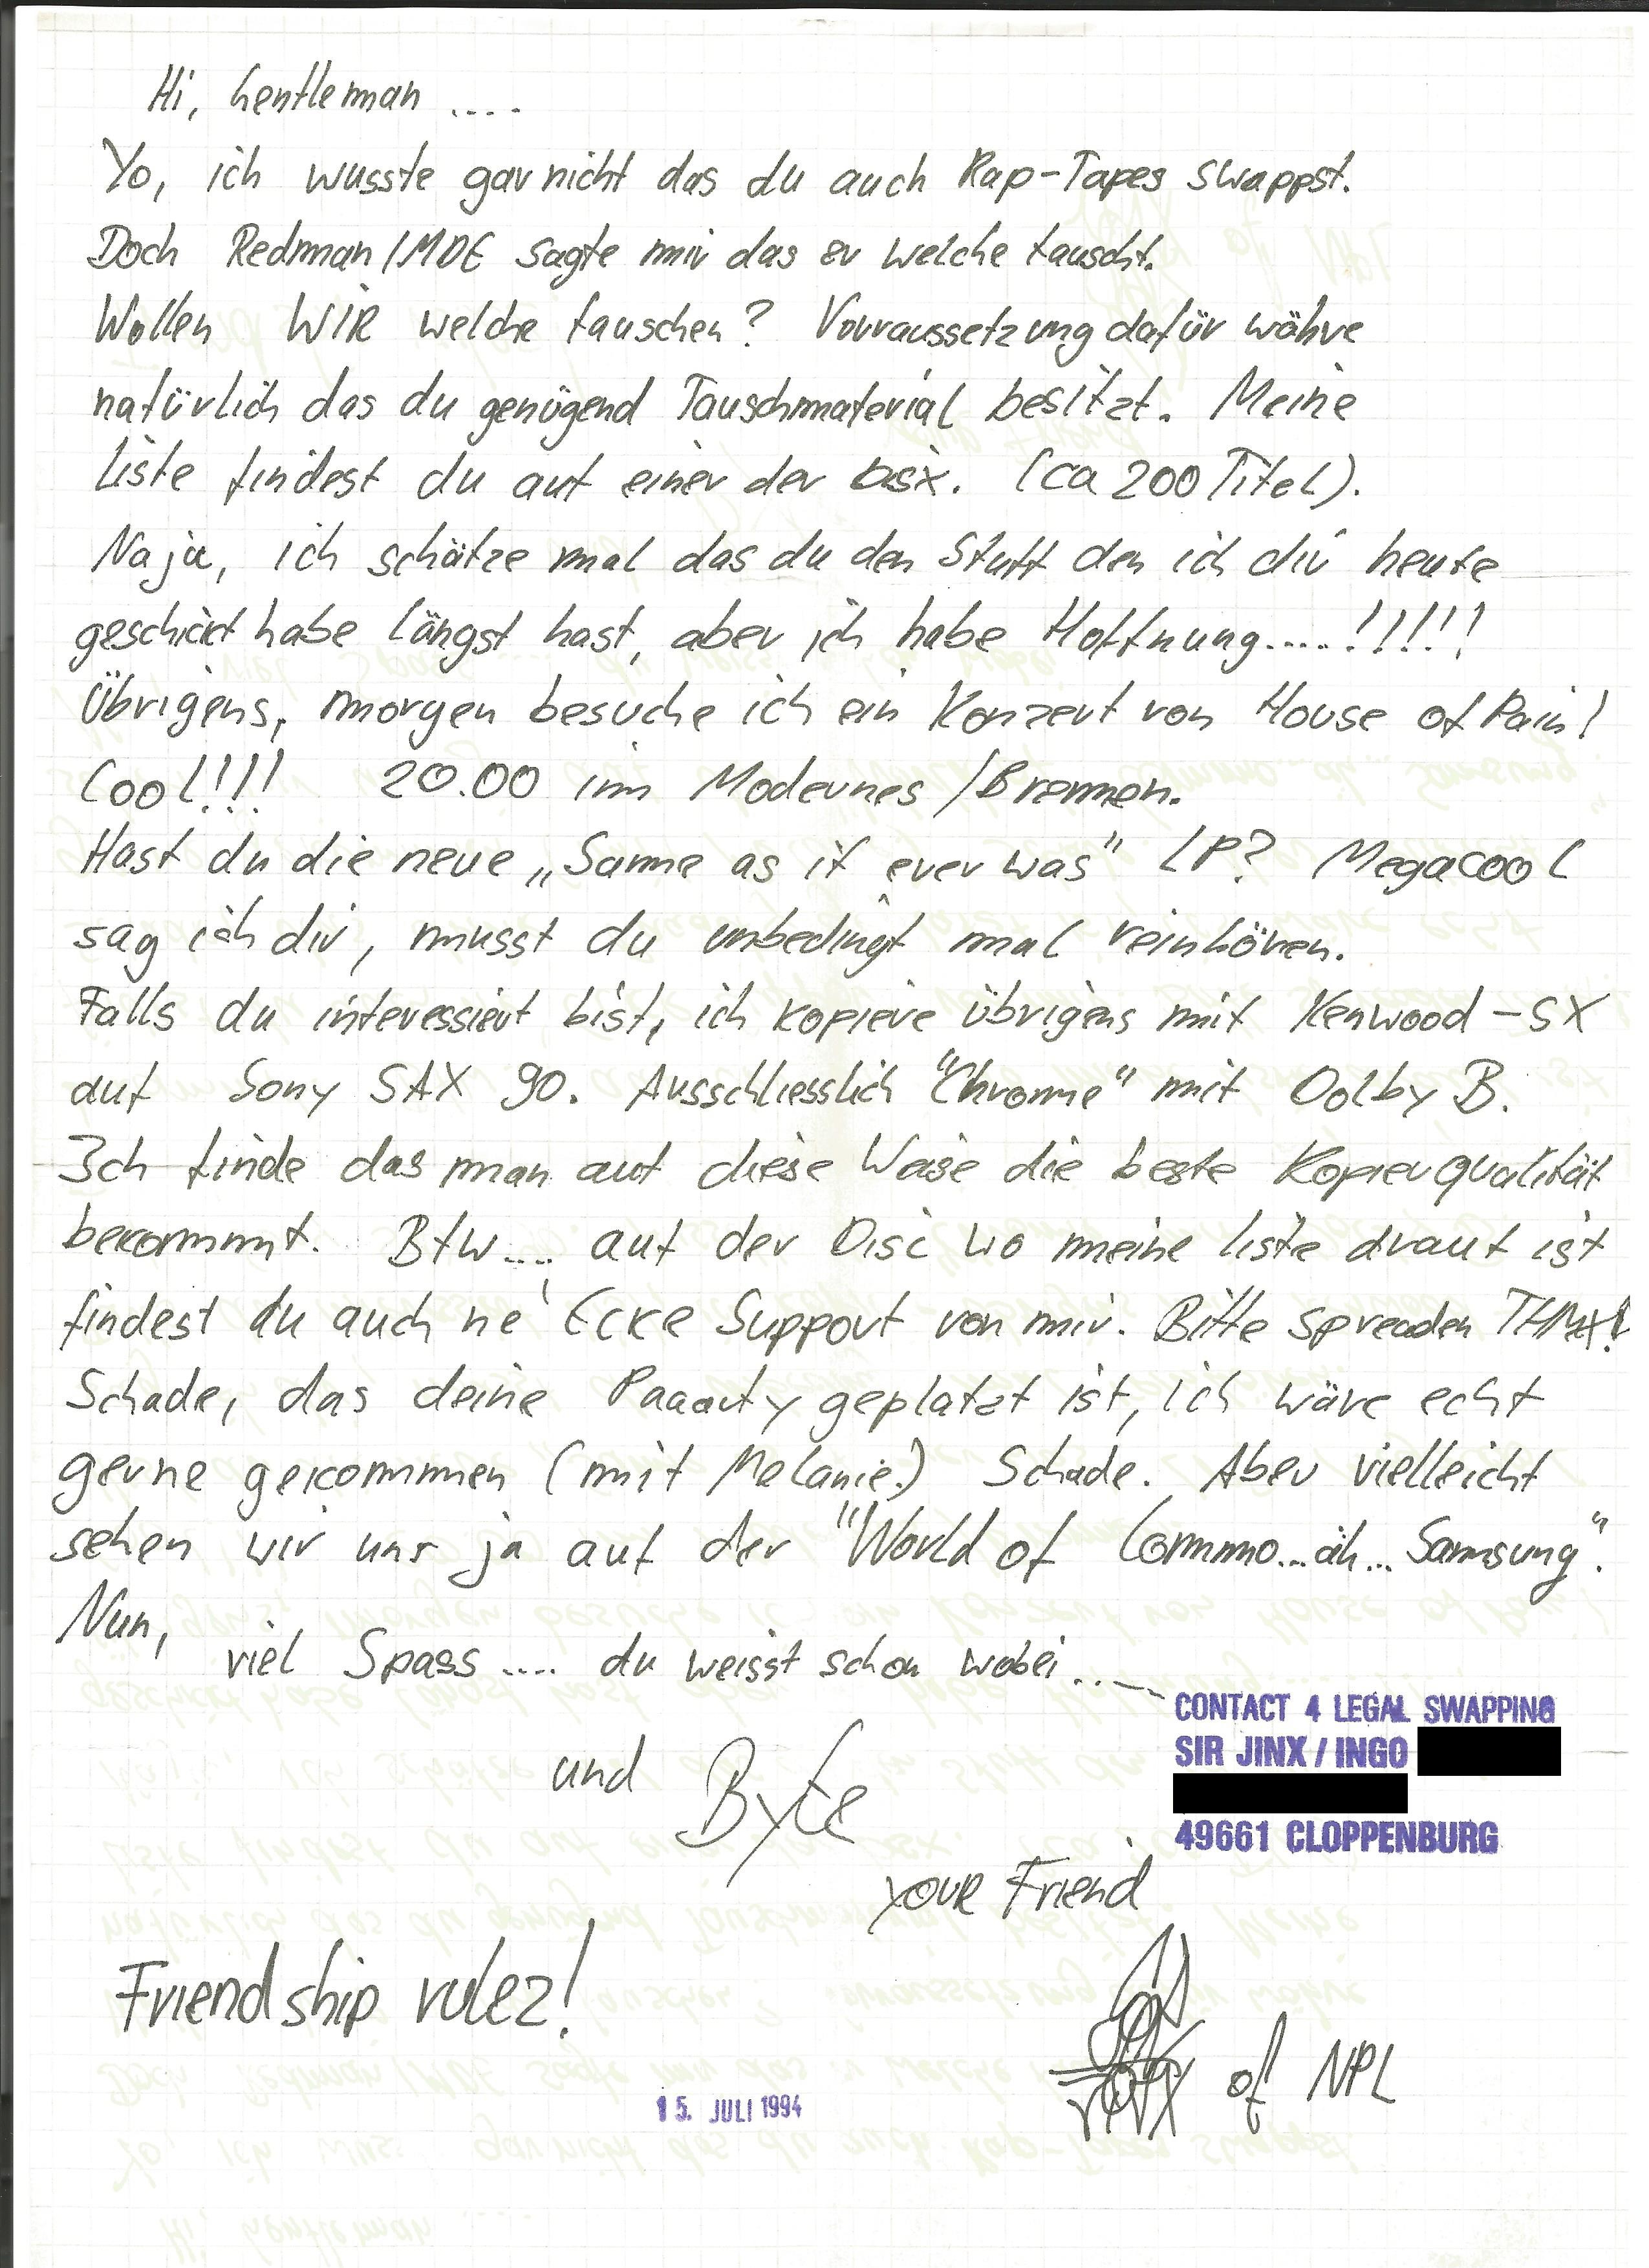 Hi, Gentleman ....
Yo, ich wusste garnicht das du auch Rap-Tapes swappst.
Doch Redman/MDE sagte mir das er welche tauscht.
Wollen WIR welche tauschen? Vorraussetzung dafür währe
natürlich das du genügend Tauschmaterial besitzt. Meine
Liste findest du auf einer der (ca 200 Titel).
Naja, ich schätze mal das du den Stuff den ich dir heute
geschickt habe längst hast, aber ich habe Hoffnung.....!!!!!
Übrigens, morgen besuche ich ein Konzert von House of Pain!
Cool!!! 20.00 im Modernes/Bremen.
Hast du die neue „Same as it ever was" LP? Megacool
sag ich dir, musst du unbedingt mal reinhören.
Falls du interessiert bist, ich kopiere übrigens mit Kenwood-SX
auf Sony SAX 90. Ausschliesslich "Chrome" mit Dolby B.
Ich finde das man auf diese Weise die beste Kopierqualität
bekommt. Btw.... auf der Disc wo meine Liste drauf ist
findest du auch ne' Ecke Support von mir. Bitte spreaden THNX!
Schade, das deine Paaarty geplatzt ist, ich wäre echt
gerne gekommen (mit Melanie!) Schade. Aber vielleicht
sehen wir uns ja auf der "World of Commo...äh... Samsung".
Nun,
viel Spass .... du weisst schon wobei...--
CONTACT 4 LEGAL SWAPPING
SIR JINX / INGO
49661 CLOPPENBURG
und Byte
YOUR Friend
Friendship rulez!
JINX of NPL
15. JULI 1994